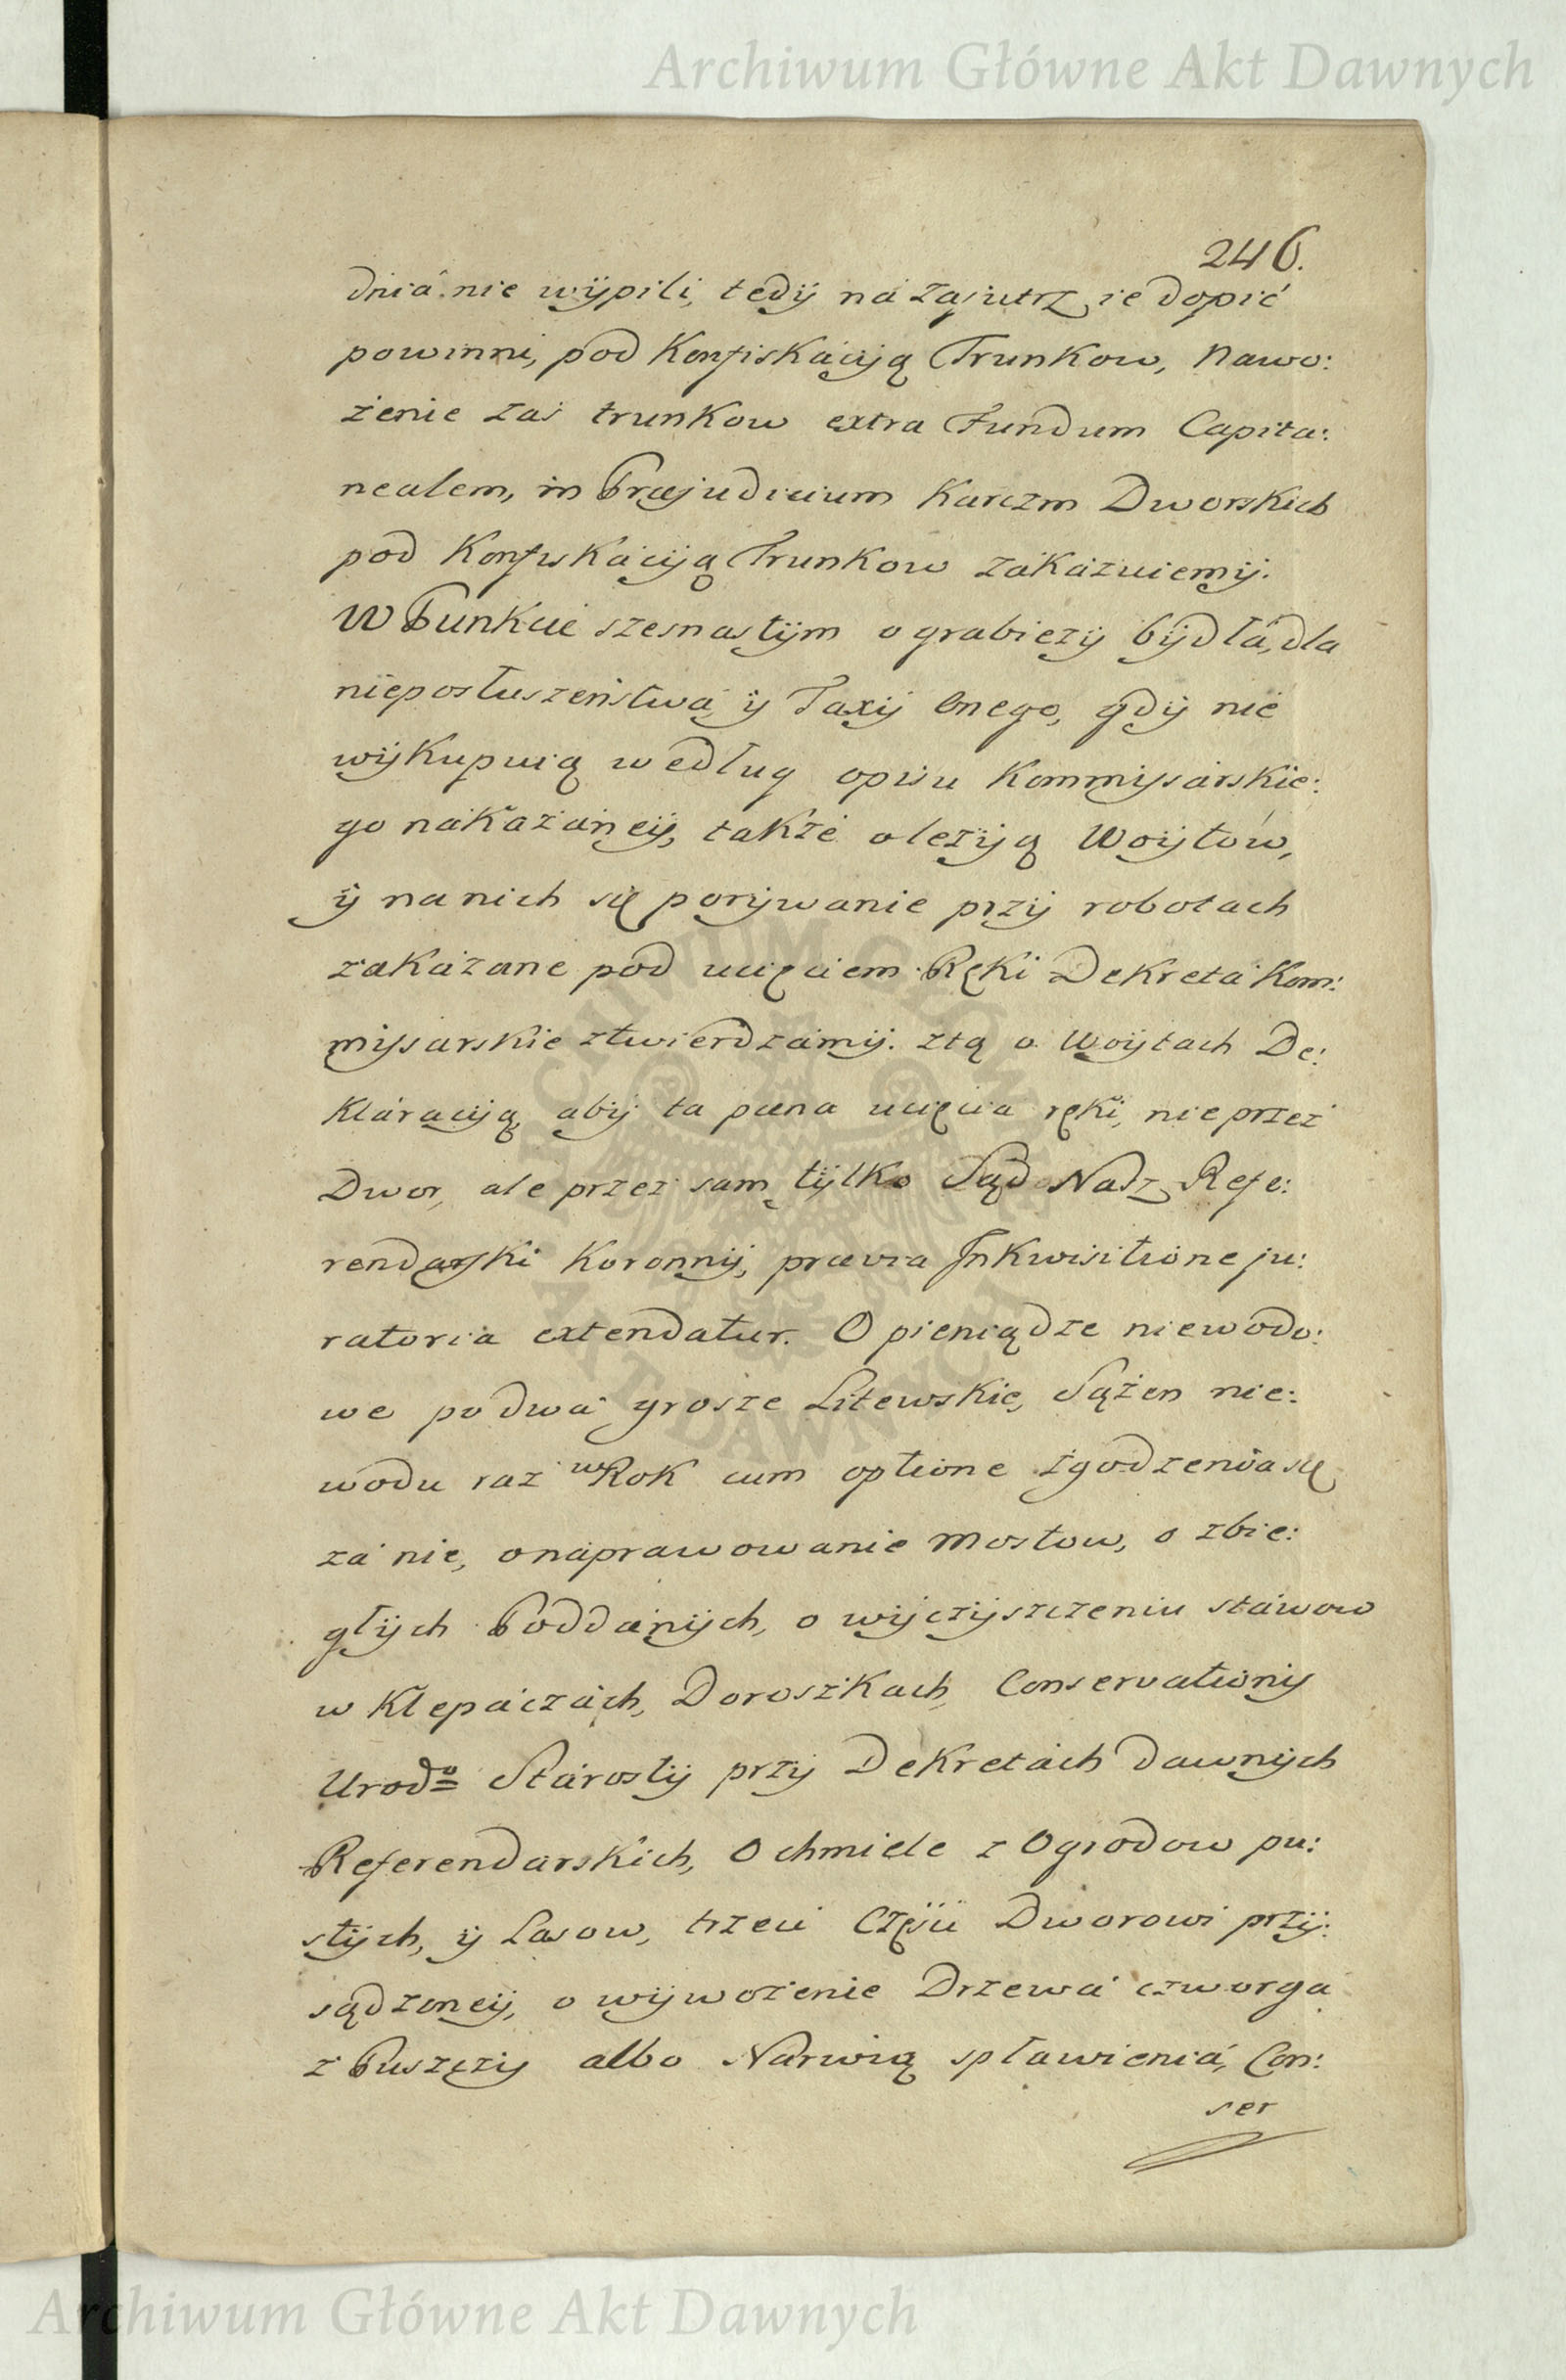 Archiwum Główne Akt Dawnych
246.
dniá nie wÿpili, tedÿ ná zajutrz ie dopić
powinni, pod Konfiskácÿą Trunkow, Nawo:
żenie zaś trunkow extra Fundum Capita:
nealem, in Præjudicium Karczm Dworskich
pod Konfiskácÿą Trunkow zákázuiemÿ.
W Punkcie szesnastÿm o grabieżÿ bÿdłá, dla
nieposłuszeństwá ÿ Taxÿ Onego, gdÿ nie
wÿkupuią według opisu Kommissárskie:
go nákázáneÿ, także o leżÿą Woÿtów,
ÿ na nich się porÿwanie przÿ robotach
zakázane pod ucięciem Ręki Dekretá Kom:
missarskie ztwierdzámÿ. ztą o Woÿtach De:
kláracÿą, abÿ ta pæna ucięcia ręki, nie przez
Dwor, ale przez sam tÿlko Sąd Nasz Refe:
rendarski Koronnÿ, prævia Inkwisitione ju:
ratoria extendatur. O pieniądze niewodo:
we po dwá grosze Litewskie, Sążen nie:
wodu raz w Rok cum optione zgodzenia się
zá nie, o náprawowanie Mostow, o zbie:
głÿch Poddánÿch, o wÿczÿszczeniu stáwow
w Klepáczách, Doroszkach, Conservationÿ
Urodo Stárostÿ przÿ Dekretách dawnÿch
Referendarskich, O chmiele z Ogrodow pu:
stÿch, ÿ Lasow, trzeci Częsci Dworowi przÿ:
sądzoneÿ, o wÿwożenie Drzewá czworga
z Puszczÿ albo Narwią spławieniá, Con:
ser
Archiwum Główne Akt Dawnych